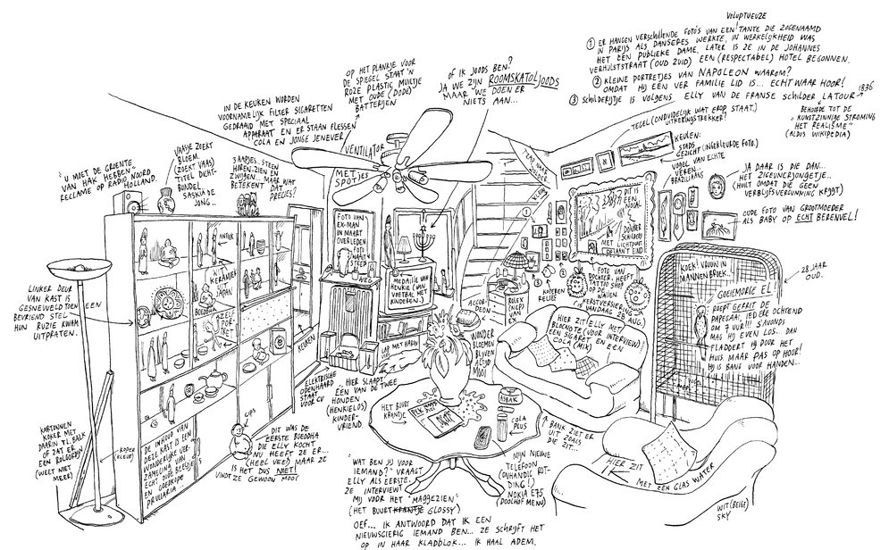 ① ER HANGEN VERSCHILLENDE FOTO'S VAN EEN VOLUPTUEUZE TANTE DIE ZOGENAAMD
IN PARIJS ALS DANSERES WERKTE, IN WERKELIJKHEID WAS
HET EEN PUBLIEKE DAME. LATER IS ZE IN DE JOHANNES
VERHULSTSTRAAT (OUD ZUID) EEN (RESPECTABEL) HOTEL BEGONNEN.
② KLEINE PORTRETJES VAN NAPOLEON WAAROM?
OMDAT HIJ EEN VER FAMILIE LID IS... ECHT WAAR HOOR!
③ SCHILDERIJTJE IS VOLGENS ELLY VAN DE FRANSE SCHILDER LATOUR 1836
BEHOORDE TOT DE
"KUNSTZINNIGE STROMING
HET REALISME"
(ALDUS WIKIPEDIA)
OF IK JOODS BEN?
JA WE ZIJN ROOMSKATOLJOODS
MAAR WE DOEN ER
NIETS AAN...
OP HET PLANKJE VOOR
DE SPIEGEL STAAT 'N
ROZE PLASTIC MULTJE
MET OUDE (DODE)
BATTERIJEN
IN DE KEUKEN WORDEN
VOORNAMELIJK FILTER SIGARETTEN
GEDRAAID MET SPECIAAL
APPARAAT EN ER STAAN FLESSEN
COLA EN JONGE JENEVER
VENTILATOR
MET
SPOTJES
"U MOET DE GROENTE
VAN HAK HEBBEN"
RECLAME OP RADIO NOORD
HOLLAND.
VAASJE ZOEKT
BLOEM
(ZOEKT VAAS)
TITEL DICHT-
BUNDEL
SASKIA DE
JONG...
3 AAPJES. STEEN
HOREN-ZIEN EN
ZWIJGEN. MAAR WAT
BETEKENT DAT
PRECIES?
TEGEL (ONDUIDELIJK WAT EROP STAAT.)
KEULEN:
STADS
GEZICHT (INGEKLEURDE FOTO.)
VOGEL VAN ECHTE
VEREN.
JA DAAR IS DIE DAN...
HET ZIGEUNERJONGETJE...
(HUILT OMDAT DIE GEEN
VERBLIJFSVERGUNNING KRIJGT)
OUDE FOTO VAN GROOTMOEDER
ALS BABY OP ECHT BERENVEL!
DIT IS
EEN
DONKER
SCHILDERIJ
MET LICHTPUNT
FOTO VAN
EX-MAN
IN MAART
OVERLEDEN.
FOTO
WAAR
STEEN
MEDAILLE VAN
HENKIE (VAN
VOETBAL MET
KINDEREN)
LINKER DEUR
VAN KAST IS
GESNEUVELD TOEN EEN
BEVRIEND STEL
HUN RUZIE KWAM
UITPRATEN.
KERAMIEK
JAPAN
ACCOR-
DEON
ROLEX
KNOP
VAN
EX
WONDER
BLOEMEN
BLIJVEN
ALTIJD
MOOI
HIER ZIT (ELLY MET
BLOCNOTE (VOOR INTERVIEW)
EEN SIGARET EN EEN
COLA (MIX)
KOEK! VROUW IN
MANNENBROEK..!
GOEIEMORGE EL!
ROEPT GERRIT DE
PAPEGAAI, IEDERE OCHTEND
OM 7 UUR!!! 'S AVONDS
MAG HIJ EVEN LOS... DAN
FLADDERT HIJ DOOR HET
HUIS. MAAR PAS OP HOOR!
HIJ IS BANG VOOR HANDEN...
28 JAAR
OUD.
KEUKEN
ELEKTRISCHE
OPENHAARD
STAAT
VOOR CV
HIER SLAAPT
EEN VAN DE TWEE
HONDEN
(HENKIELOS)
KINDER-
VRIEND.
HET BUURT
KRANTJE
COLA
PLUS
BANK ZIET ER
UIT ZOALS
ZIT...
MIJN NIEUWE
TELEFOON
(ONHANDIG ROT-
DING!)
NOKIA E75
(DOOLHOF MENU)
HIER ZIT IK
MET EEN GLAS WATER
WIT (BEIGE)
SKY
KARTONNEN
KOKER MET
DAARIN TL BALK
OF ZAT ER
EEN ROLGORDIJN
(WEET NIET
MEER)
KOPER
(KLEUR)
DE INHOUD VAN
DEZE KAST IS EEN
WONDERLIJKE VER-
ZAMELING VAN
ECHT OUDE BEELDJES
EN GOEDKOPE
PRULLARIA
GIPS
DIT WAS DE
EERSTE BOEDDHA
DIE ELLY KOCHT
NU HEEFT ZE ER...
(HEEL VEEL) MAAR ZE
IS HET DUS NIET!
VINDT ZE GEWOON MOOI
"WAT BEN JIJ VOOR
IEMAND?" VRAAGT
ELLY ALS EERSTE.
ZE INTERVIEWT
MIJ VOOR HET "MAGGEZIEN"
(HET BUURTKRANTJE GLOSSY)
OEF... IK ANTWOORD DAT IK EEN
NIEUWSGIERIG IEMAND BEN... ZE SCHRIJFT HET
OP IN HAAR KLADBLOK... IK HAAL ADEM.